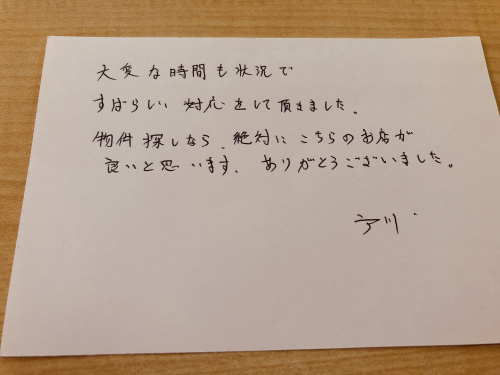 大変な時間も状況で
すばらしい対応をして頂きました。
物件探しなら、絶対にこちらのお店が
良いと思います。ありがとうございました。